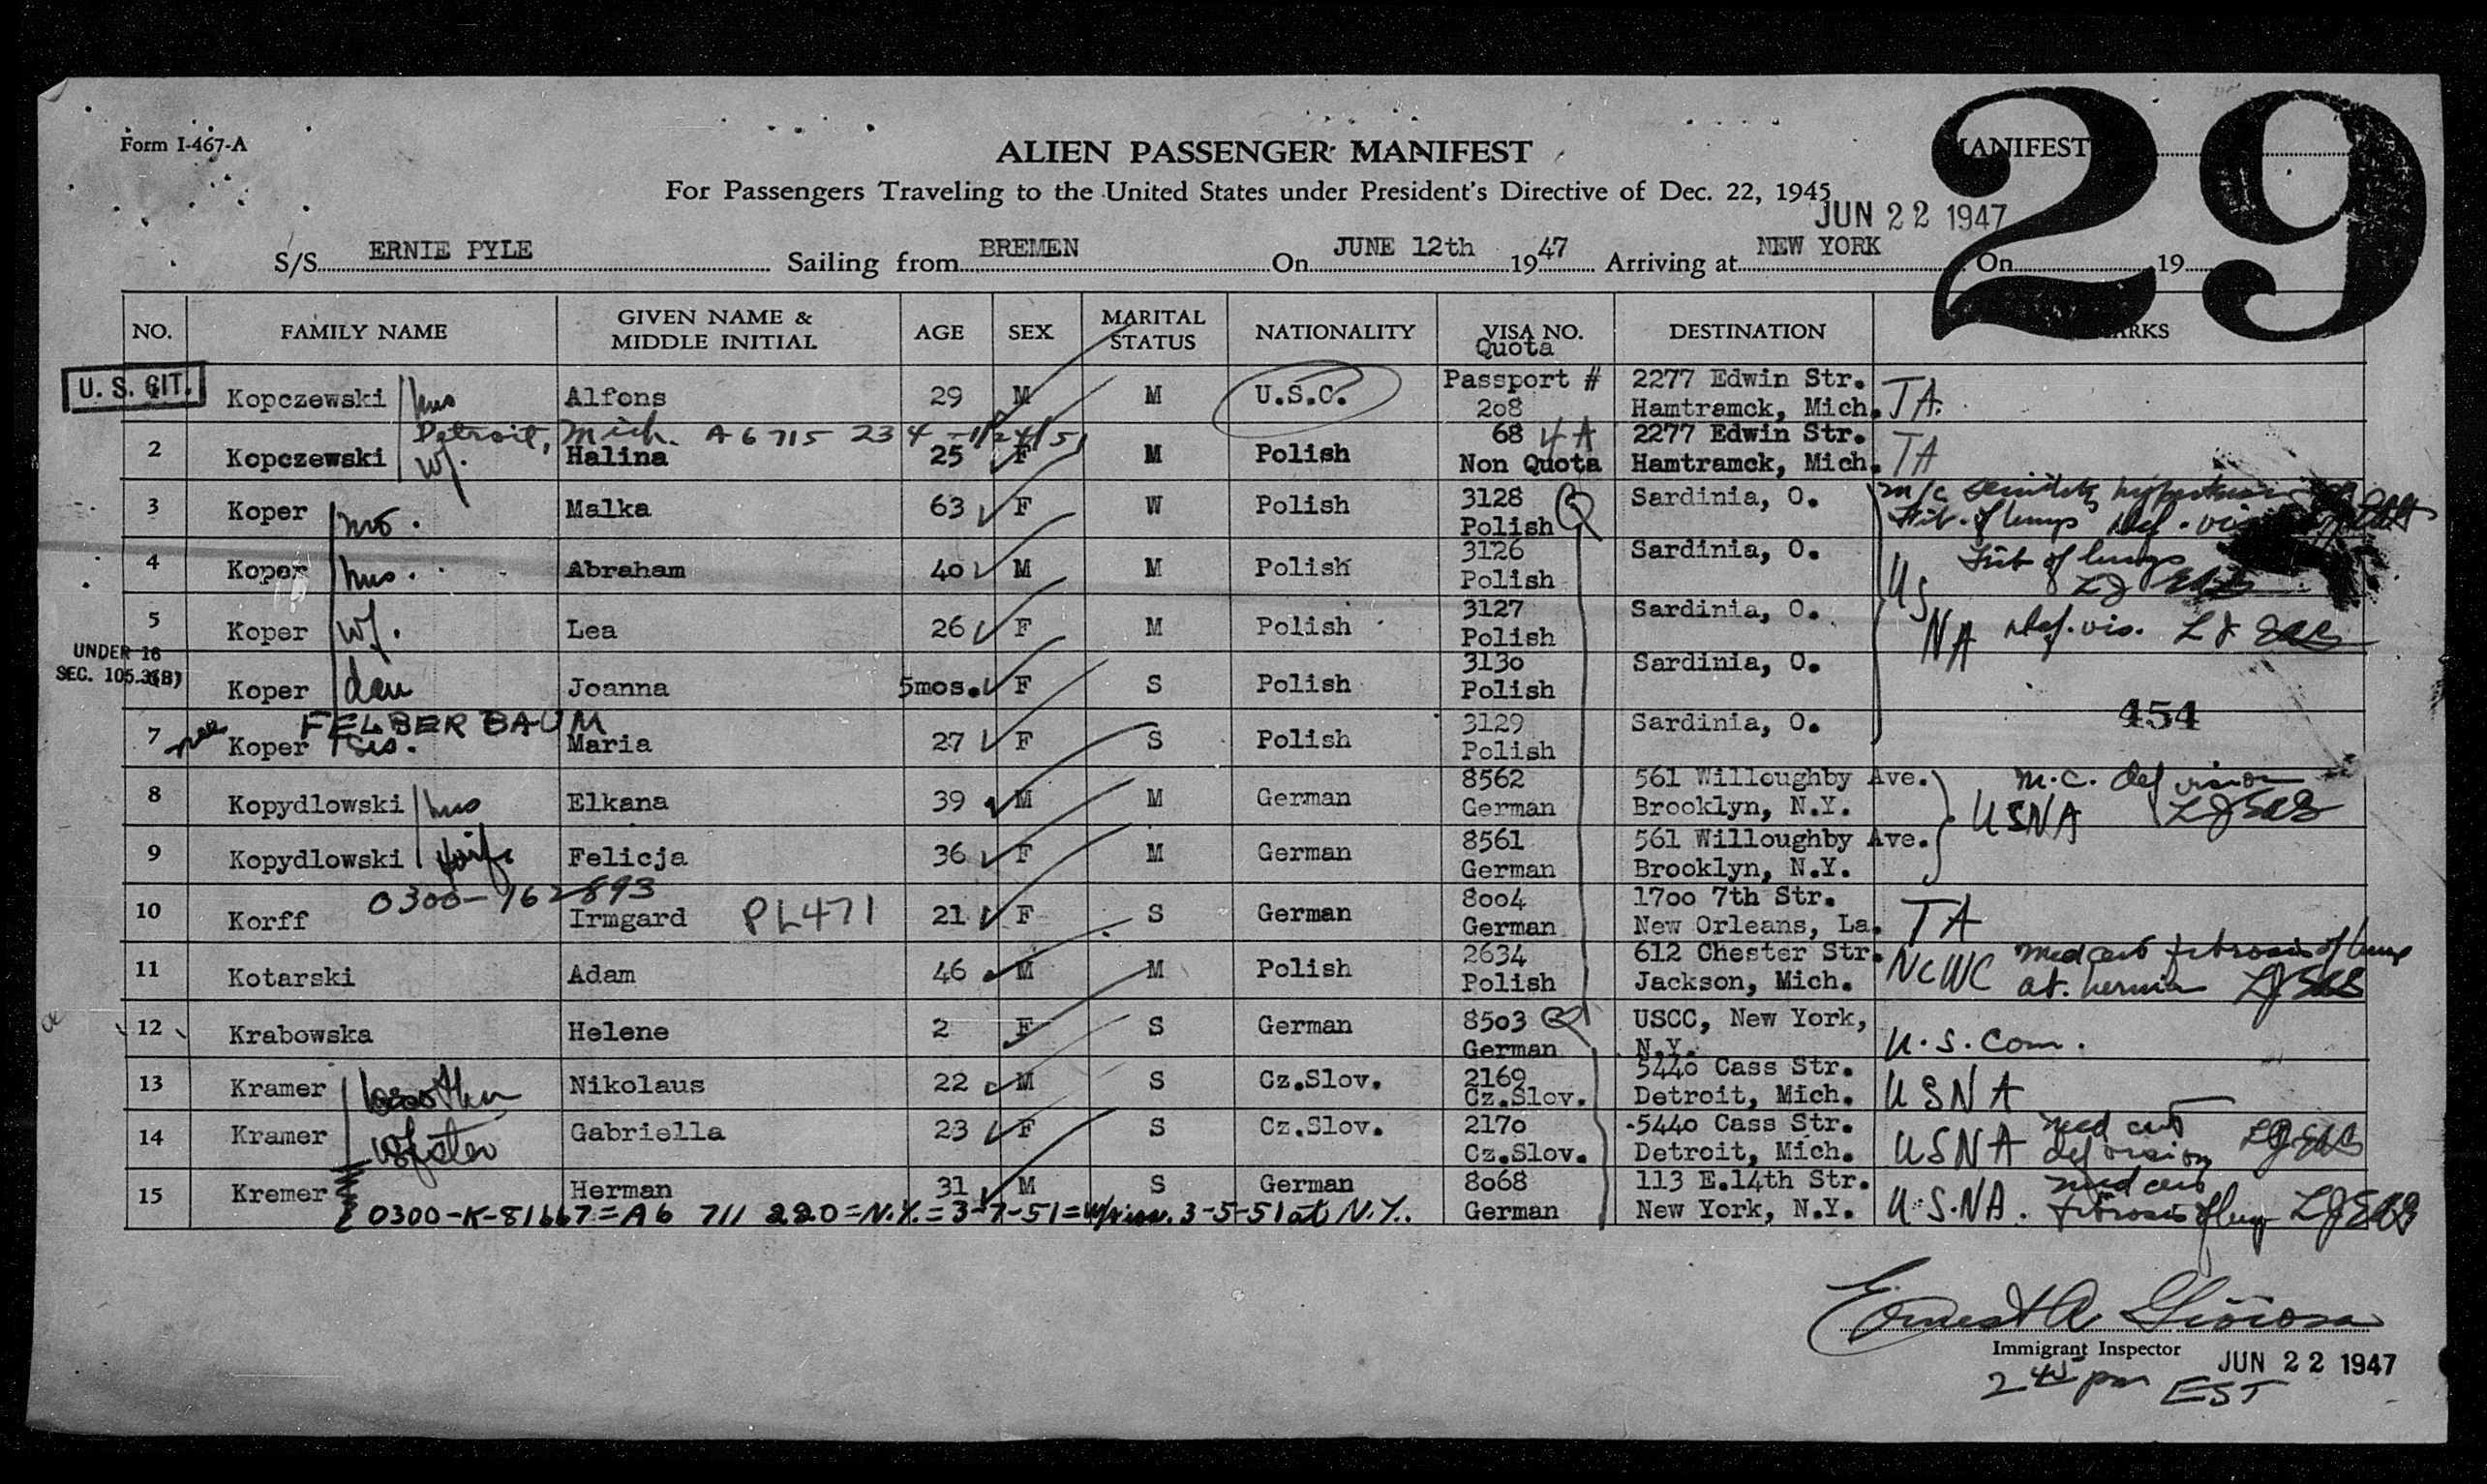 Form I-467-A
ALIEN PASSENGER MANIFEST
MANIFEST
29
For Passengers Traveling to the United States under President's Directive of Dec. 22, 1945
JUN 22 1947
S/S ERNIE PYLE Sailing from BREMEN On JUNE 12th 1947 Arriving at NEW YORK On 19
NO. FAMILY NAME GIVEN NAME & MIDDLE INITIAL AGE SEX MARITAL STATUS NATIONALITY VISA NO. Quota DESTINATION
U. S. CIT. Kopczewski hus Alfons 29 M M U.S.C. Passport # 208 2277 Edwin Str. Hamtramck, Mich. TA.
Detroit, Mich. A6 715 234 - 1/24/51
2 Kopczewski wf. Halina 25 F M Polish 68 4A Non Quota 2277 Edwin Str. Hamtramck, Mich. TA
3 Koper mo. Malka 63 F W Polish 3128 Polish Q Sardinia, O. m/c senility
Fib. of lungs def. vis
4 Koper hus. Abraham 40 M M Polish 3126 Polish Sardinia, O. Fib of lungs
5 Koper wf. Lea 26 F M Polish 3127 Polish Sardinia, O. US NA def. vis.
UNDER 16
SEC. 105.3(B)
Koper dau Joanna 5mos. F S Polish 3130 Polish Sardinia, O.
454
FELBERBAUM
7 nee Koper sis. Maria 27 F S Polish 3129 Polish Sardinia, O.
8 Kopydlowski hus Elkana 39 M M German 8562 German 561 Willoughby Ave. Brooklyn, N.Y. USNA m.c. def vision
9 Kopydlowski wife Felicja 36 F M German 8561 German 561 Willoughby Ave. Brooklyn, N.Y.
0300-162893
10 Korff Irmgard PL471 21 F S German 8004 German 1700 7th Str. New Orleans, La. TA
11 Kotarski Adam 46 M M Polish 2634 Polish 612 Chester Str. Jackson, Mich. NCWC med cert fibrosis of lung
hernia
12 Krabowska Helene 2 F S German 8503 German USCC, New York, N.Y. U.S. Com.
13 Kramer brother Nikolaus 22 M S Cz.Slov. 2169 Cz.Slov. 5440 Cass Str. Detroit, Mich. USNA
14 Kramer sister Gabriella 23 F S Cz.Slov. 2170 Cz.Slov. 5440 Cass Str. Detroit, Mich. USNA med cert def vision
15 Kremer Herman 31 M S German 8068 German 113 E.14th Str. New York, N.Y. U.S.NA. med cert fibrosis of lung
0300-K-81667=A6 711 220=N.Y.=3-7-51= 3-5-51 at N.Y.
Ernest A
Immigrant Inspector
JUN 22 1947
2 45 pm EST